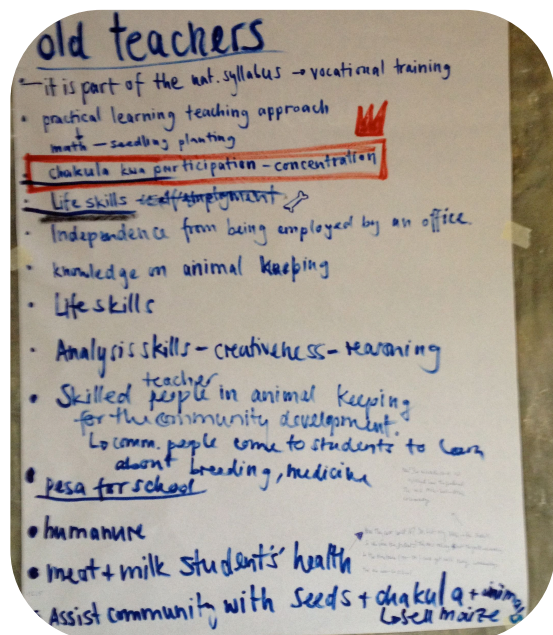 old teachers
- it is part of the nat. syllabus → vocational training
• practical learning teaching approach
↓
math - seedling planting
• chakula kwa participation - concentration
• Life skills - self employment
• Independence from being employed by an office.
• knowledge on animal keeping
• Life skills
• Analysis skills - creativeness - reasoning
teacher
• Skilled people in animal keeping
for the community development.
↳ comm. people come to students to learn
about breeding, medicine
• pesa for school
• humanure
• meat + milk students' health
• Assist community with seeds + chakula + animals
↳ sell maize